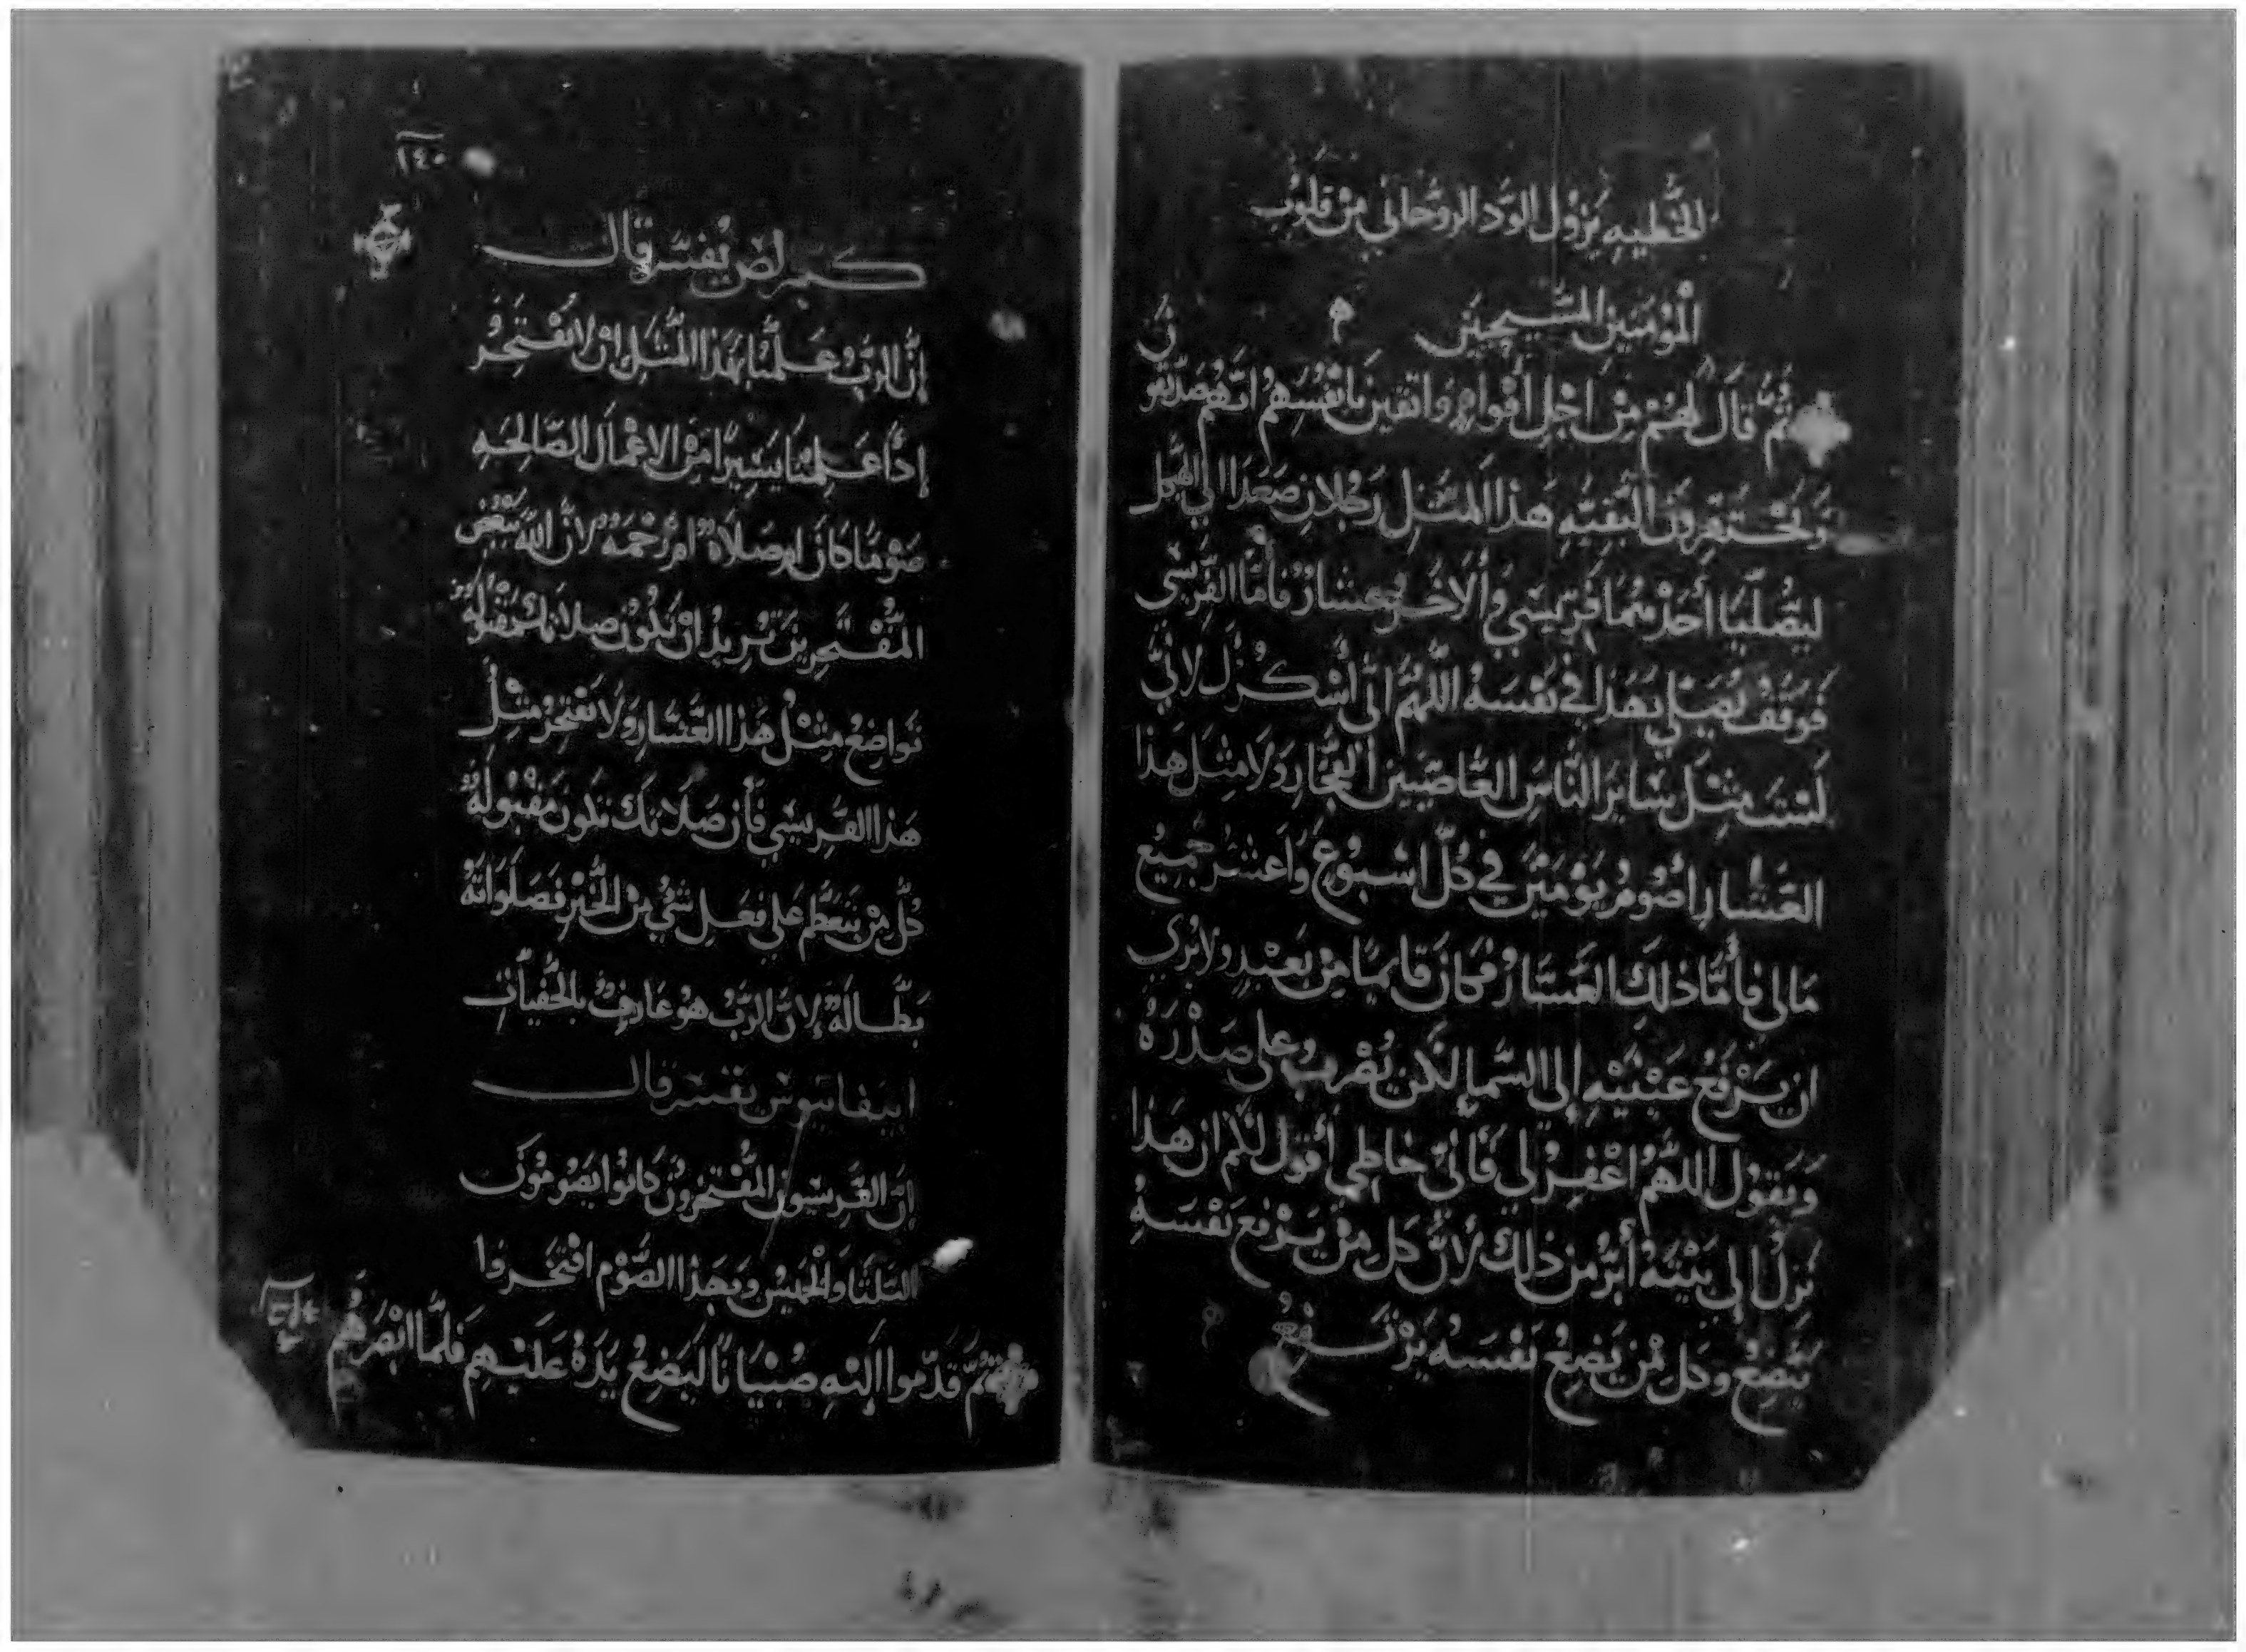 الخطيه يزول الود الروحاني من قلوب
المؤمنين المسيحيين
ثم قال لهم من اجل أقوام واثقين بأنفسهم انهم صديقو
ويحتقرون البقيه هذا المثل رجلان صعدا الي الهيكل
ليصليا أحدهما فريسي والاخر عشار فأما الفريسي
فوقف يصلي بهذا في نفسه اللهم اني أشكرك لأني
لست مثل ساير الناس العاصيين الفجار ولا مثل هذا
العشار أصوم يومين في كل اسبوع واعشر جميع
مالي فأما ذلك العشار فكان قايما من بعيد ولا يري
ان يرفع عينيه إلي السما لكن يضرب علي صدره
ويقول اللهم اغفر لي فأني خاطي أقول لكم ان هذا
نزل الي بيته أبر من ذلك لأن كل من يرفع نفسه
يتضع وكل من يضع نفسه يرتفع
١٤٠
كيرلص يفسر قال
إن الرب علمنا بهذا المثل ان لا نفتخر
إذا عملنا يسيرا من الاعمال الصالحه
صوما كان او صلاة ام رحمه لان الله يبغض
المفتخرين تريد ان تكون صلاتك مقبوله
تواضع مثل هذا العشار ولا تفتخر مثل
هذا الفريسي فأن صلاتك تكون مقبوله
كل من يتعظم علي فعل شي من الخير فصلواته
بطاله لان الرب هو عارف بالخفيات
ابيفانيوس يفسر قال
إن الفريسيون المفتخرون كانوا يصومون
التلتا والخميس وبهذا الصوم افتخروا
ثم قدموا إليه صبيانا ليضع يده عليهم فلما ابصرهم